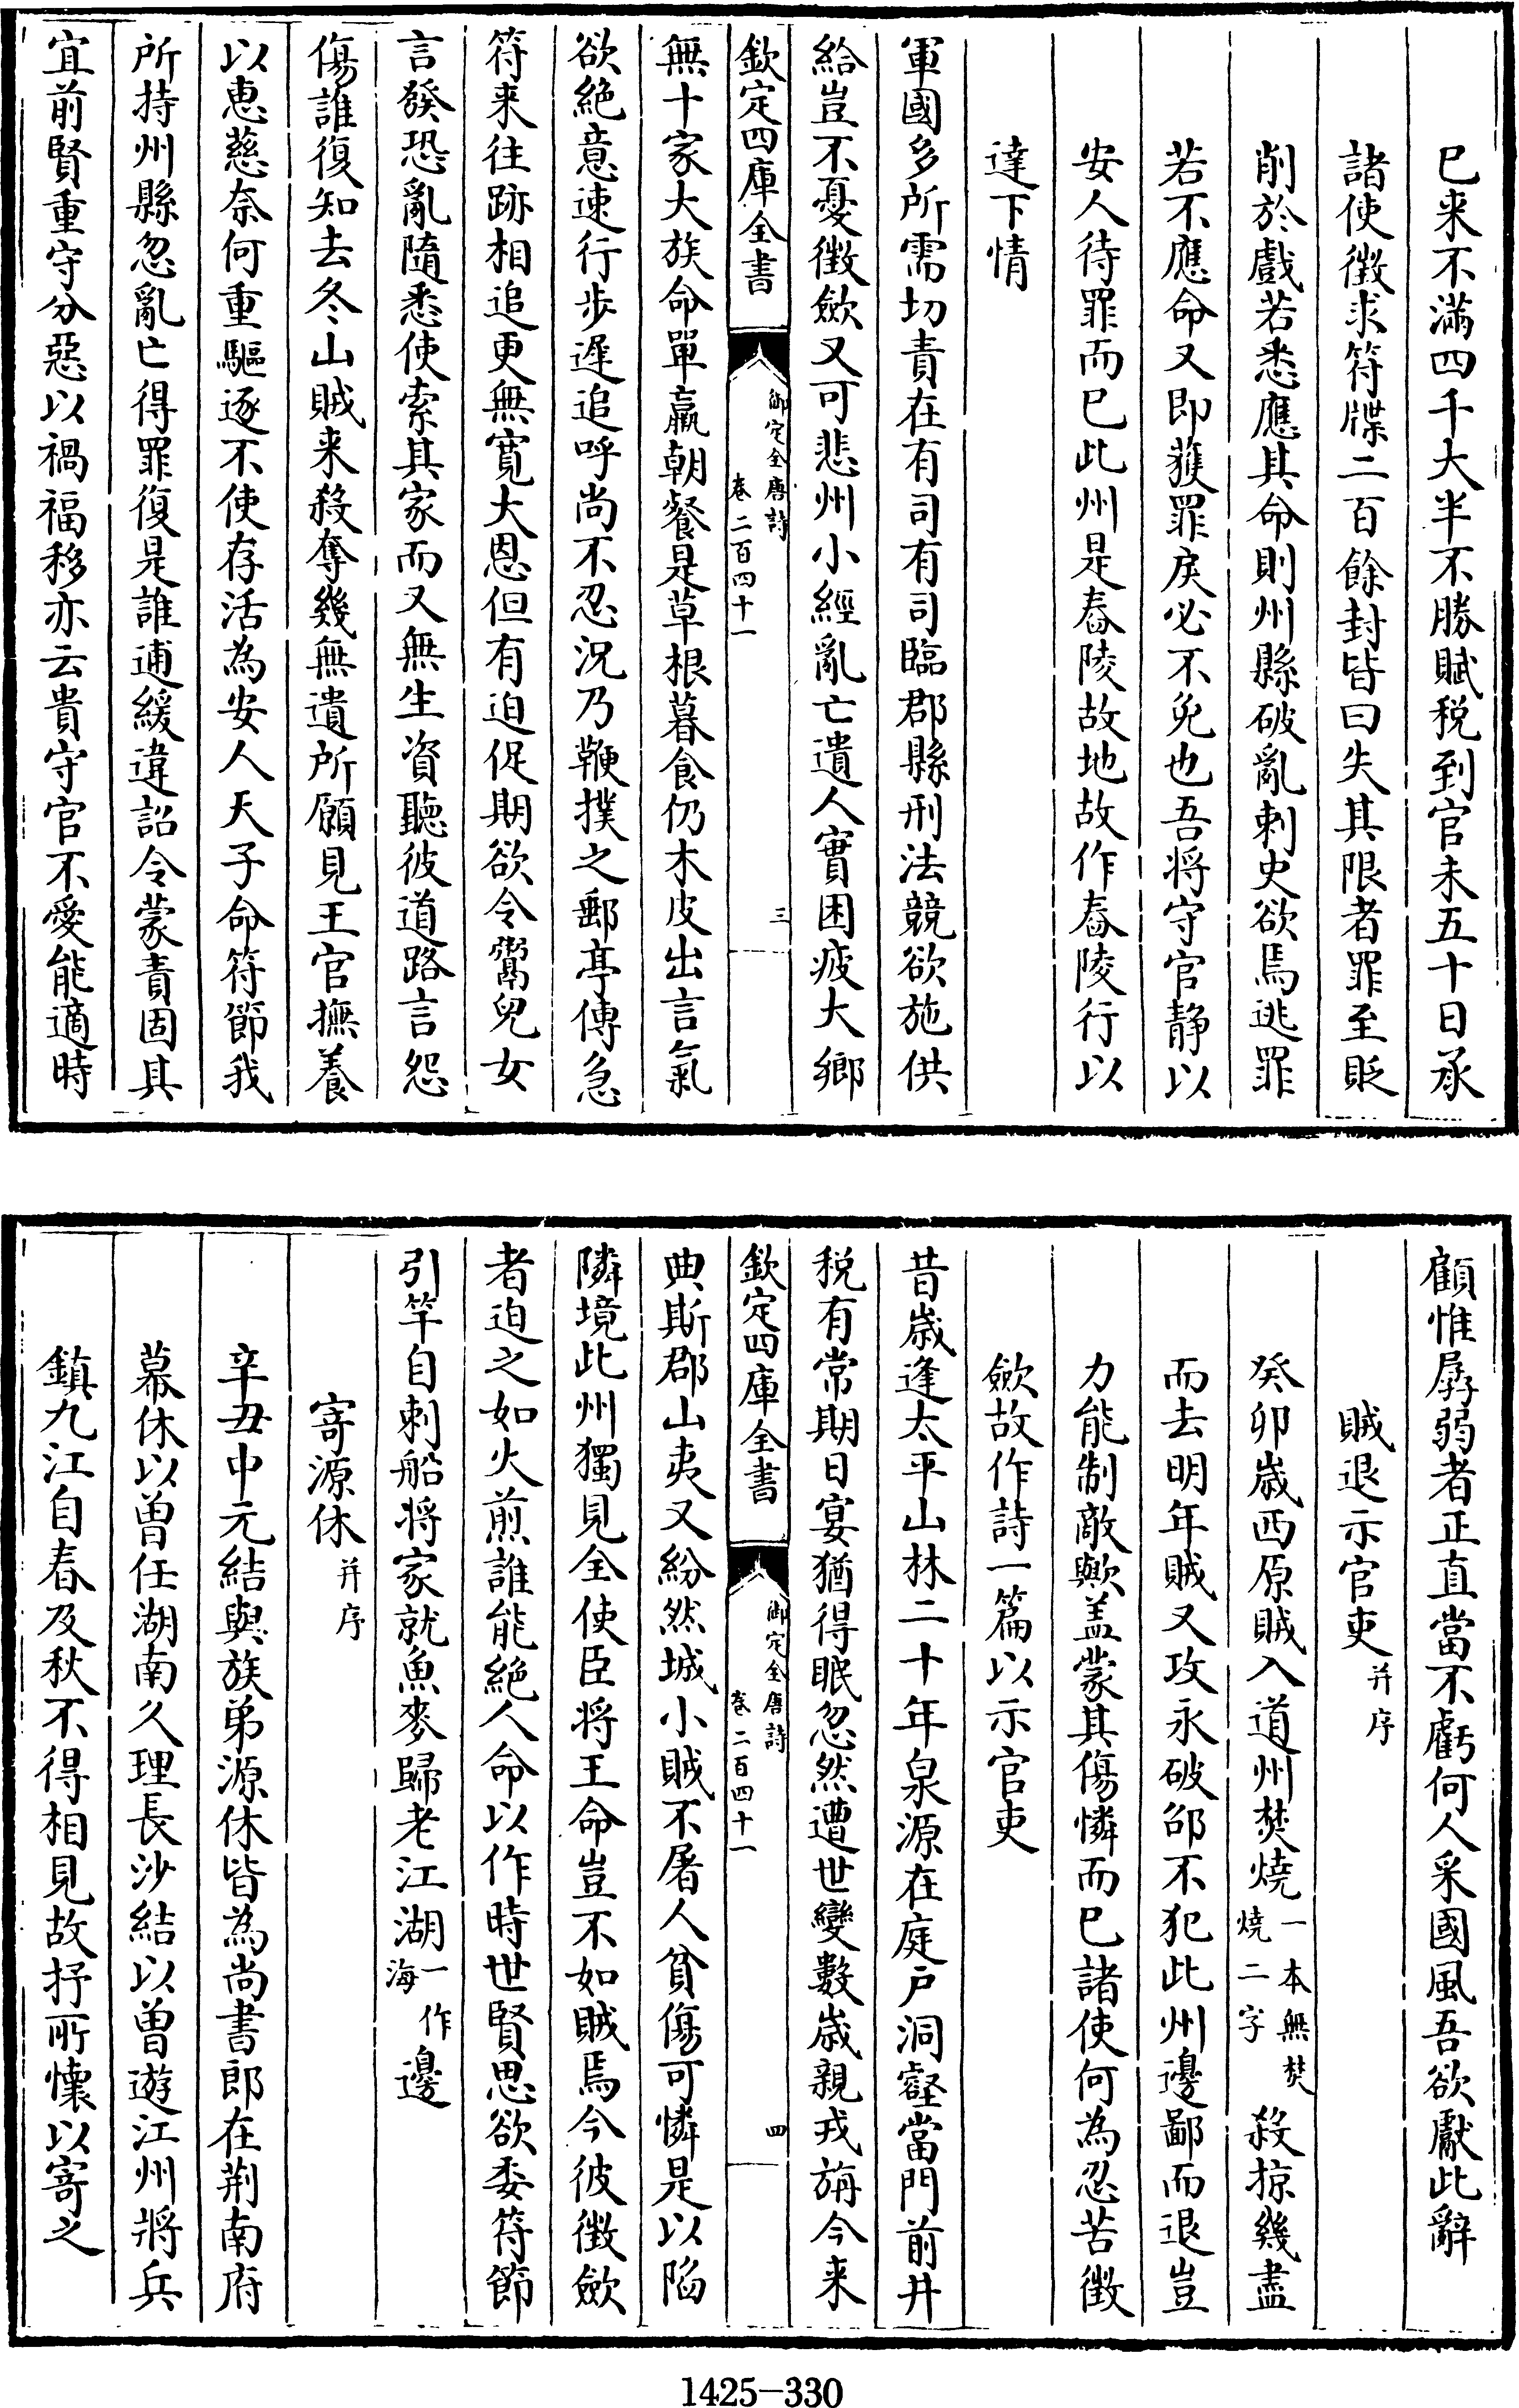 已来不滿四千大半不勝賦税到官未五十日承
諸使徴求符牒二百餘封皆曰失其限者罪至貶
削於戲若悉應其命則州縣破亂刺史欲焉逃罪
若不應命又即獲罪戾必不免也吾将守官静以
安人待罪而已此州是舂陵故地故作舂陵行以
達下情
軍國多所需切責在有司有司臨郡縣刑法競欲施供
給豈不憂徴歛又可悲州小經亂亡遺人實困疲大鄉
欽定四庫全書
御定全唐詩
卷二百四十一
三
無十家大族命單羸朝餐是草根暮食仍木皮出言氣
欲絶意速行步遲追呼尚不忍況乃鞭撲之郵亭傳急
符来往跡相追更無寛大恩但有迫促期欲令鬻兒女
言發恐亂隨悉使索其家而又無生資聽彼道路言怨
傷誰復知去冬山賊来殺奪幾無遺所願見王官撫養
以惠慈奈何重驅逐不使存活為安人天子命符節我
所持州縣忽亂亡得罪復是誰逋緩違詔令蒙責固其
宜前賢重守分惡以禍福移亦云貴守官不愛能適時
顧惟孱弱者正直當不虧何人采國風吾欲獻此辭
賊退示官吏并序
癸卯歳西原賊入道州焚燒一本無焚燒二字殺掠幾盡
而去明年賊又攻永破邵不犯此州邊鄙而退豈
力能制敵歟盖蒙其傷憐而已諸使何為忍苦徴
歛故作詩一篇以示官吏
昔歳逢太平山林二十年泉源在庭户洞壑當門前井
税有常期日宴猶得眠忽然遭世變數歳親戎旃今来
欽定四庫全書
御定全唐詩
卷二百四十一
四
典斯郡山夷又紛然城小賊不屠人貧傷可憐是以陷
隣境此州獨見全使臣将王命豈不如賊焉今彼徴歛
者迫之如火煎誰能絶人命以作時世賢思欲委符節
引竿自刺船将家就魚麥歸老江湖一作海邊
寄源休并序
辛丑中元結與族弟源休皆為尚書郎在荆南府
幕休以曽任湖南久理長沙結以曽遊江州將兵
鎮九江自春及秋不得相見故抒所懷以寄之
1425-330